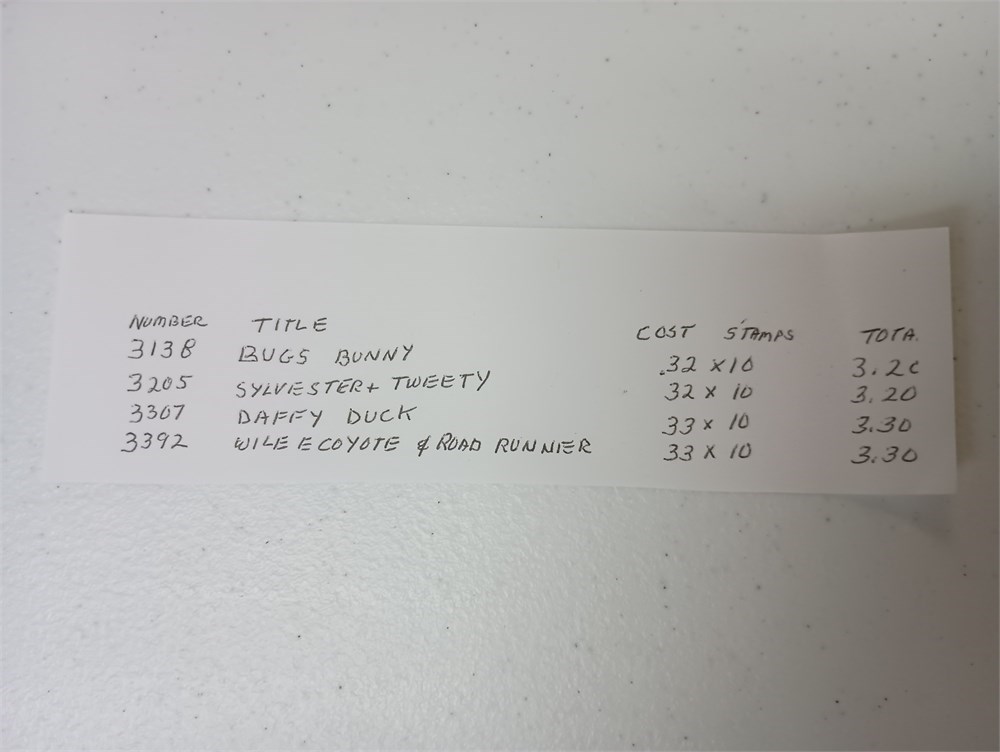 NUMBER TITLE COST STAMPS TOTA
3138 BUGS BUNNY .32 x 10 3.20
3205 SYLVESTER + TWEETY 32 x 10 3.20
3307 DAFFY DUCK 33 x 10 3.30
3392 WILE E COYOTE & ROAD RUNNIER 33 x 10 3.30